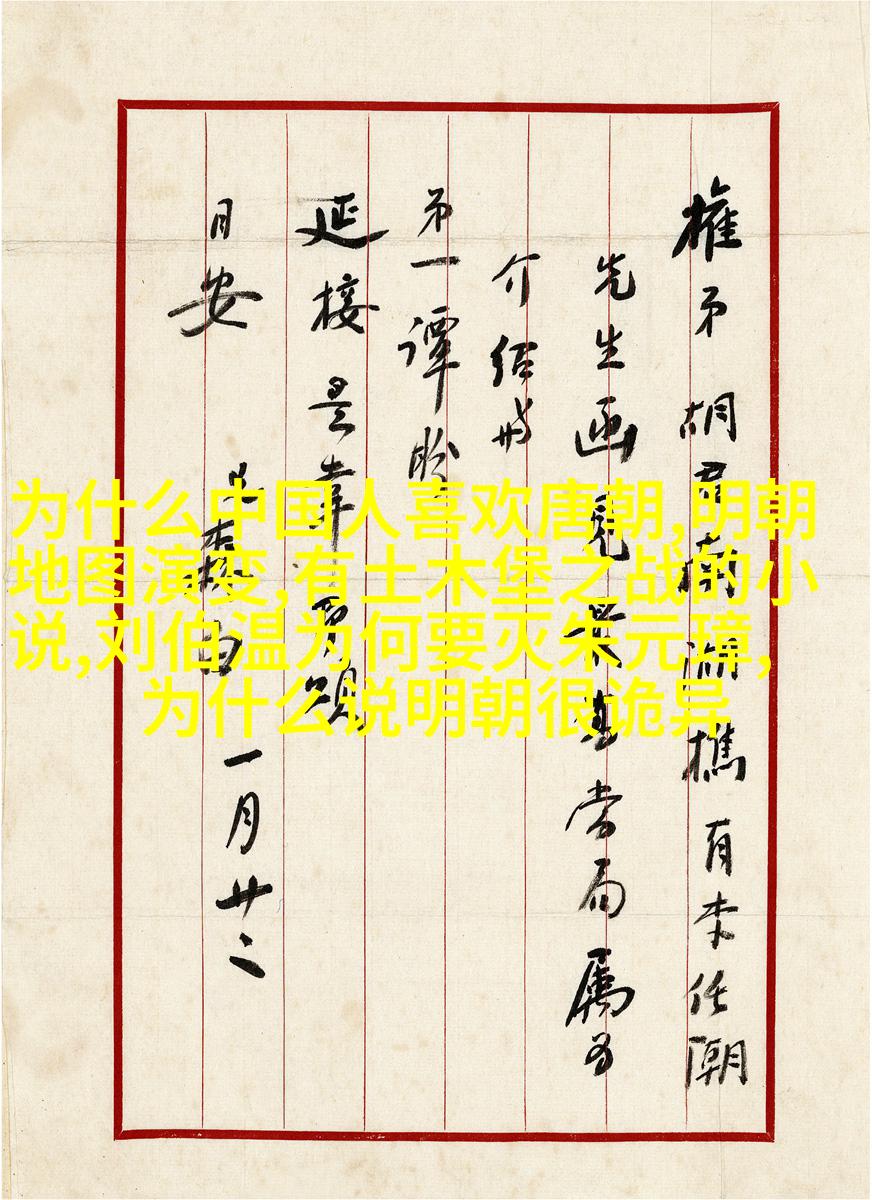 为什么中国人喜欢唐朝,明朝
地图演变,有土木堡之战的小
说,刘伯温为何要灭朱元璋,
为什么说明朝很诡异
榷弟胡君南湖樵有李任潮
先生函见 当局属为
介绍
弟一谭盼
延接是幸
日安
一月廿二